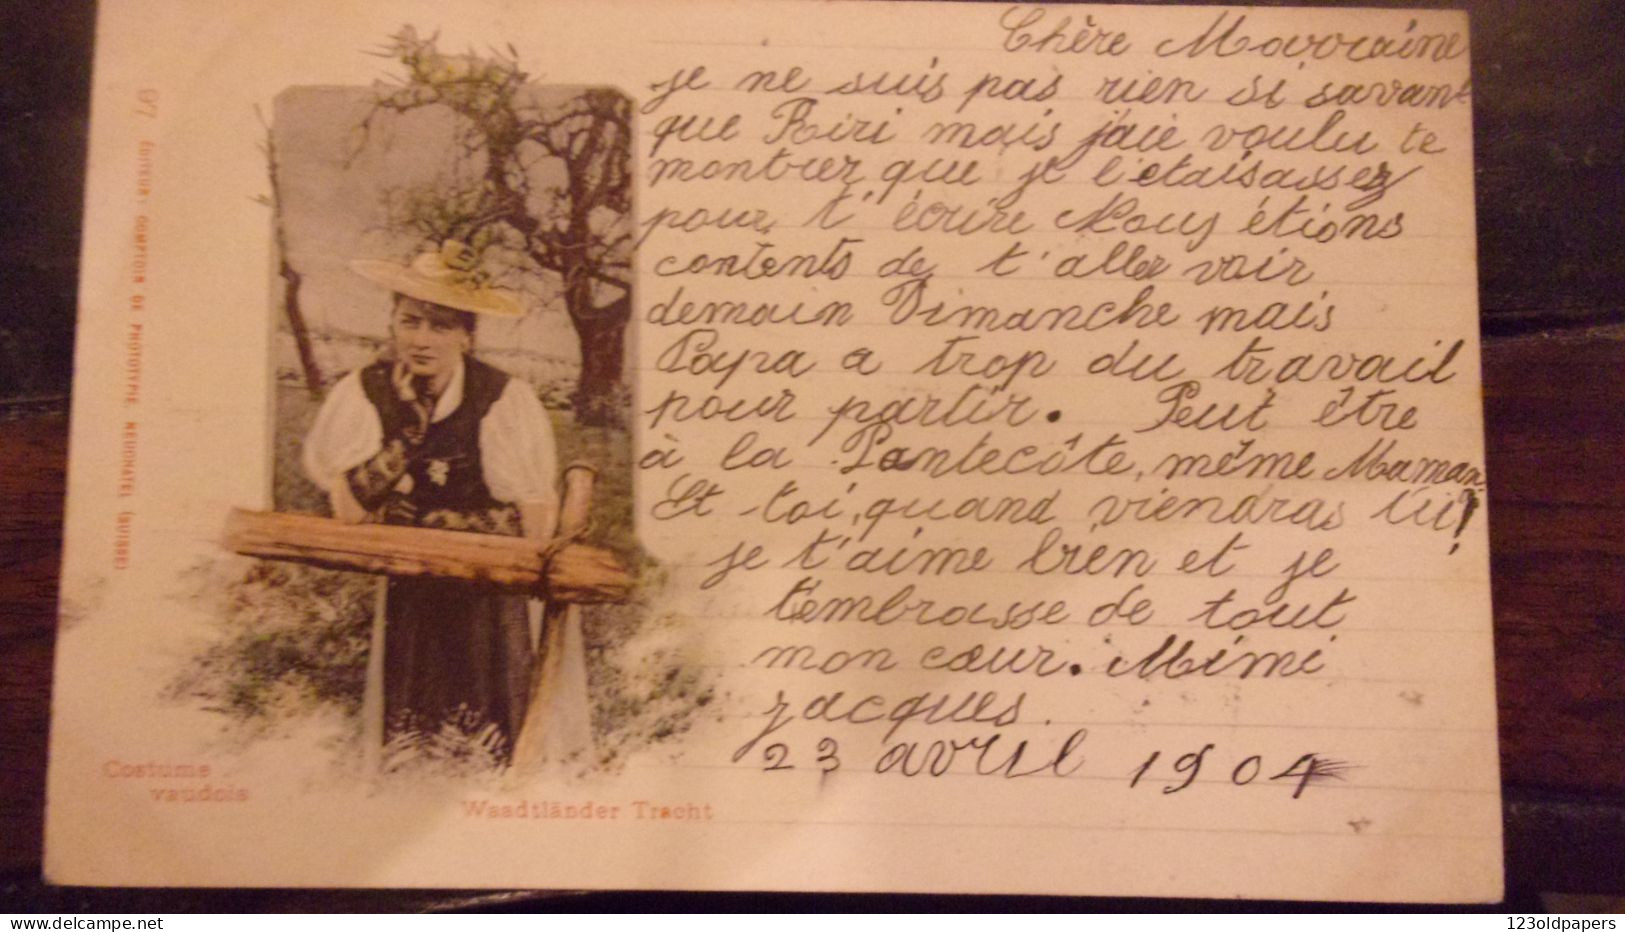 Chère Marraine
je ne suis pas rien si savant
que Riri mais j'aie voulu te
montrer que je l'etaisassez
pour t'écrire Nous étions
contents de t'aller voir
demain Dimanche mais
Papa a trop du travail
pour partir. Peut être
à la Pantecôte, même Maman
Et toi, quand viendras tu!
je t'aime bien et je
t'embrasse de tout
mon cœur. Mimi
Jacques.
23 avril 1904
97 ÉDITEUR: COMPTOIR DE PHOTOTYPIE, NEUCHATEL (SUISSE)
Costume
vaudois
Waadtländer Tracht
123oldpapers